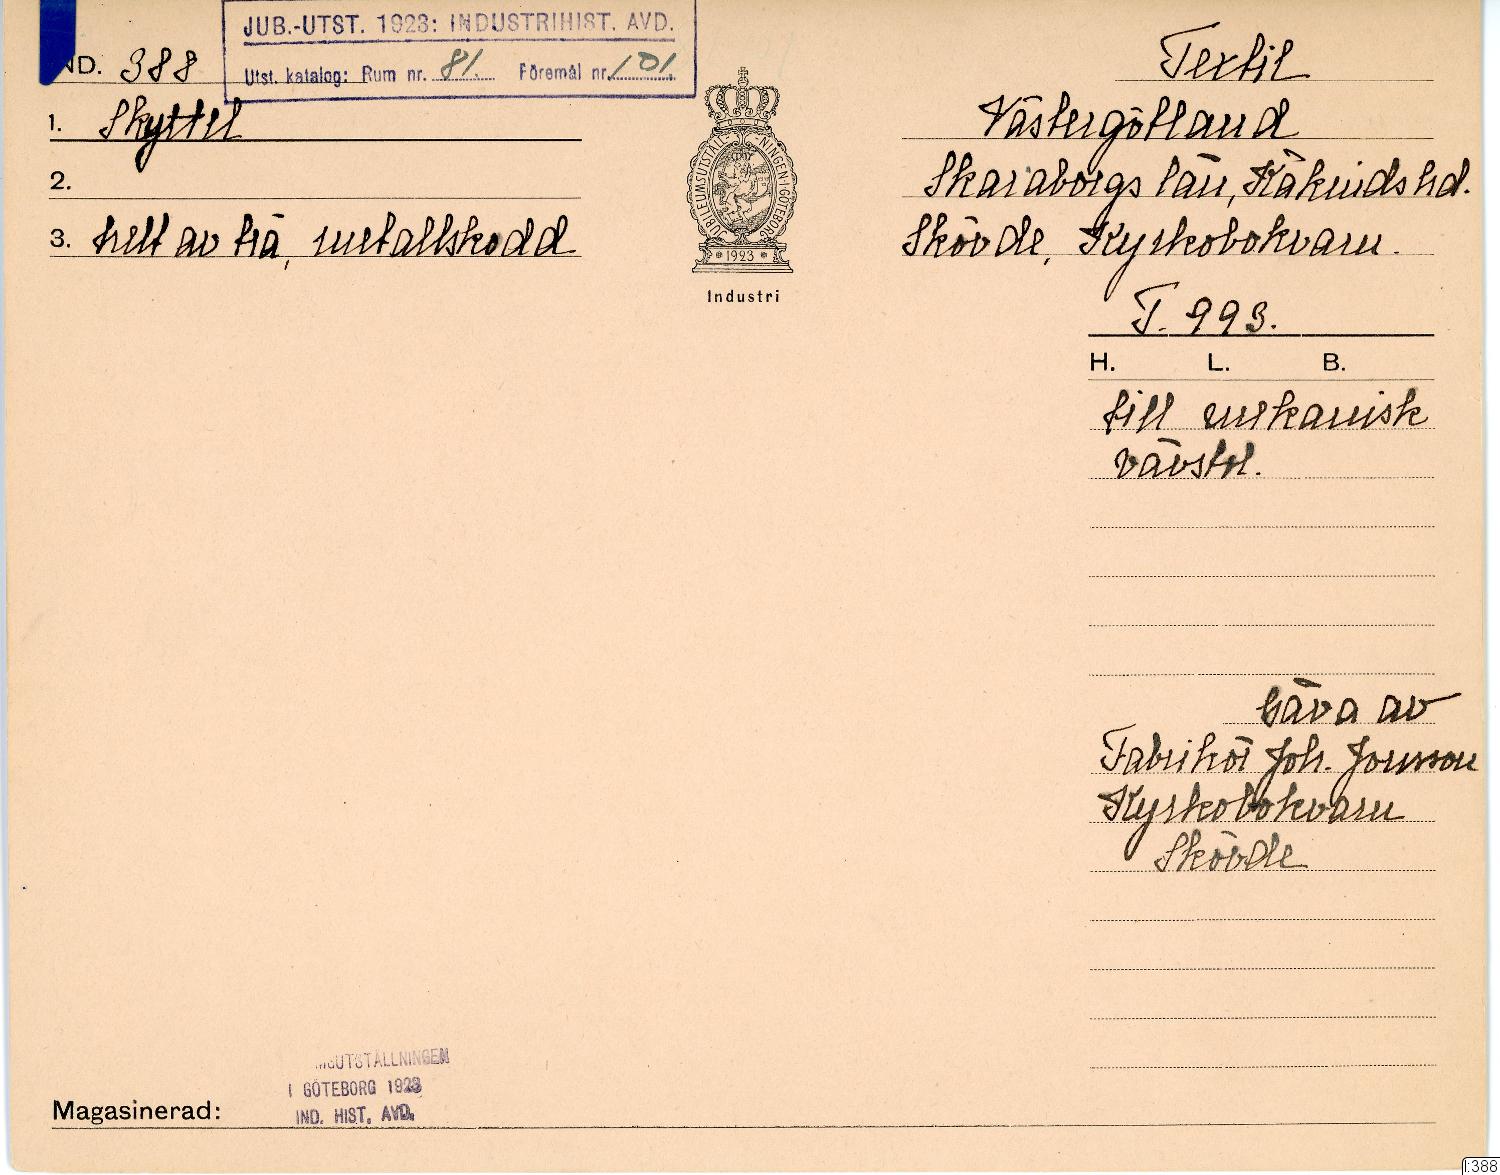 JUB.-UTST. 1923: INDUSTRIHIST. AVD.
Utst. katalog: Rum nr. 81. Föremål nr. 101.
ND. 388
Textil
1. Skyttel
Västergötland
2.
Skaraborgs län, Kåkinds hd.
3. helt av trä, metallskodd
Skövde, Kyrkobokvarn.
JUBILEUMSUTSTÄLLNINGEN I GÖTEBORG
1923
Industri
T. 993.
H. L. B.
till mekanisk
vävstol.
Gåva av
Fabrikör Joh. Jonsson
Kyrkobokvarn
Skövde
MSUTSTÄLLNINGEN
I GÖTEBORG 1923
IND. HIST. AVD.
Magasinerad:
I:388